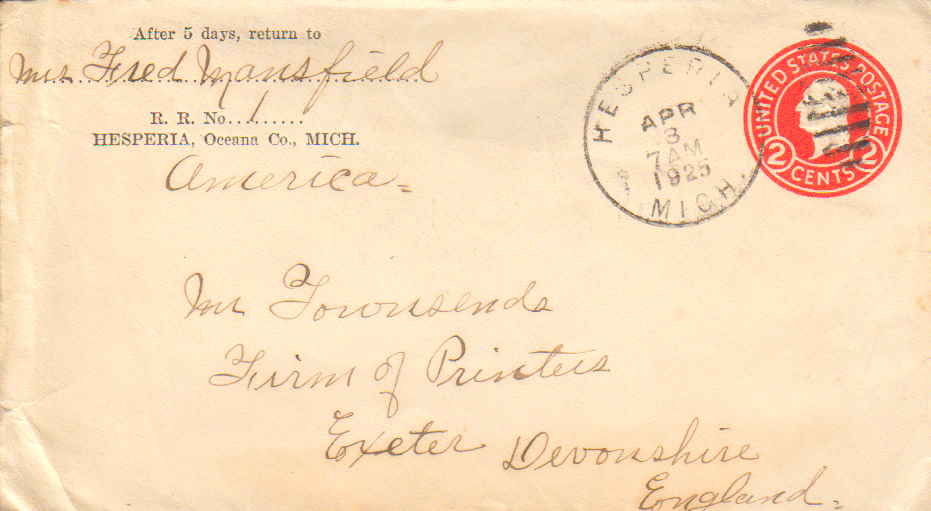 After 5 days, return to
Mrs Fred Mansfield
R. R. No. 1
HESPERIA, Oceana Co., MICH.
America
HESPERIA
APR
3
7 AM
1925
MICH.
UNITED STATES POSTAGE
2 CENTS 2
Mr Townsends
Firm of Printers
Exeter Devonshire
England.